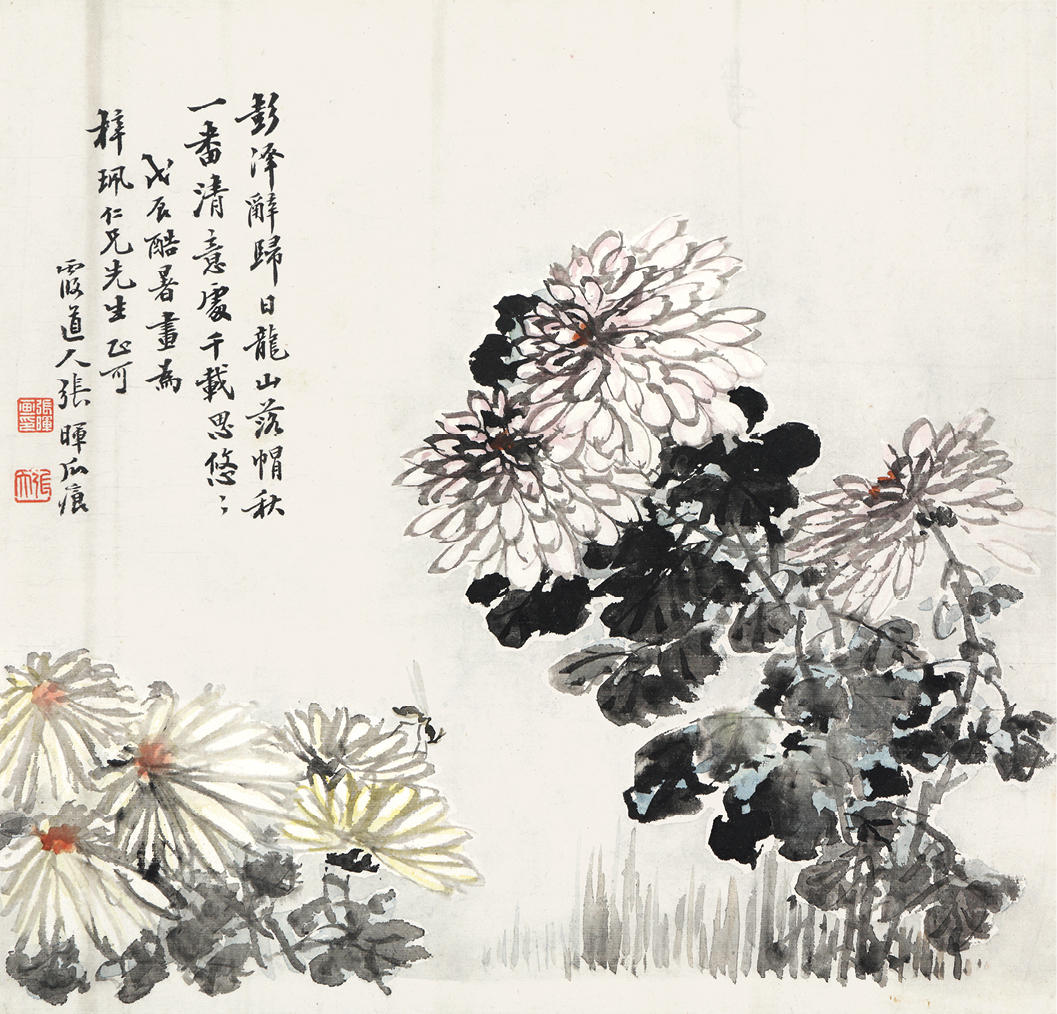 彭泽辭歸日龍山落帽秋
一番清意處千載思悠〻
戊辰酷暑畫爲
梓珮仁兄先生正可
霞道人張暉爪痕
張暉画印
張